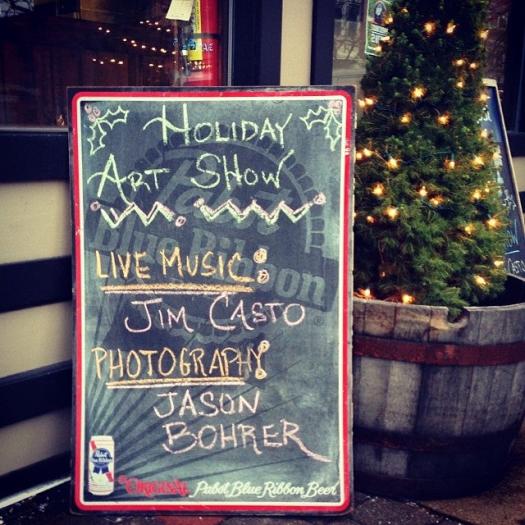 HOLIDAY
ART SHOW
Pabst
Blue Ribbon
LIVE MUSIC:
JIM CASTO
PHOTOGRAPHY:
JASON
BOHRER
ORIGINAL Pabst Blue Ribbon Beer